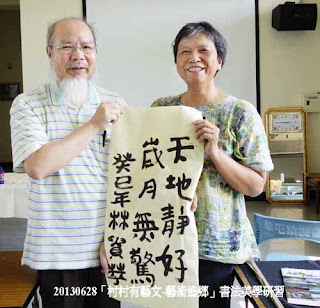 天地靜好
歲月無驚
癸巳年 林
20130628「村村有藝文-藝術鄉」書法美學研習